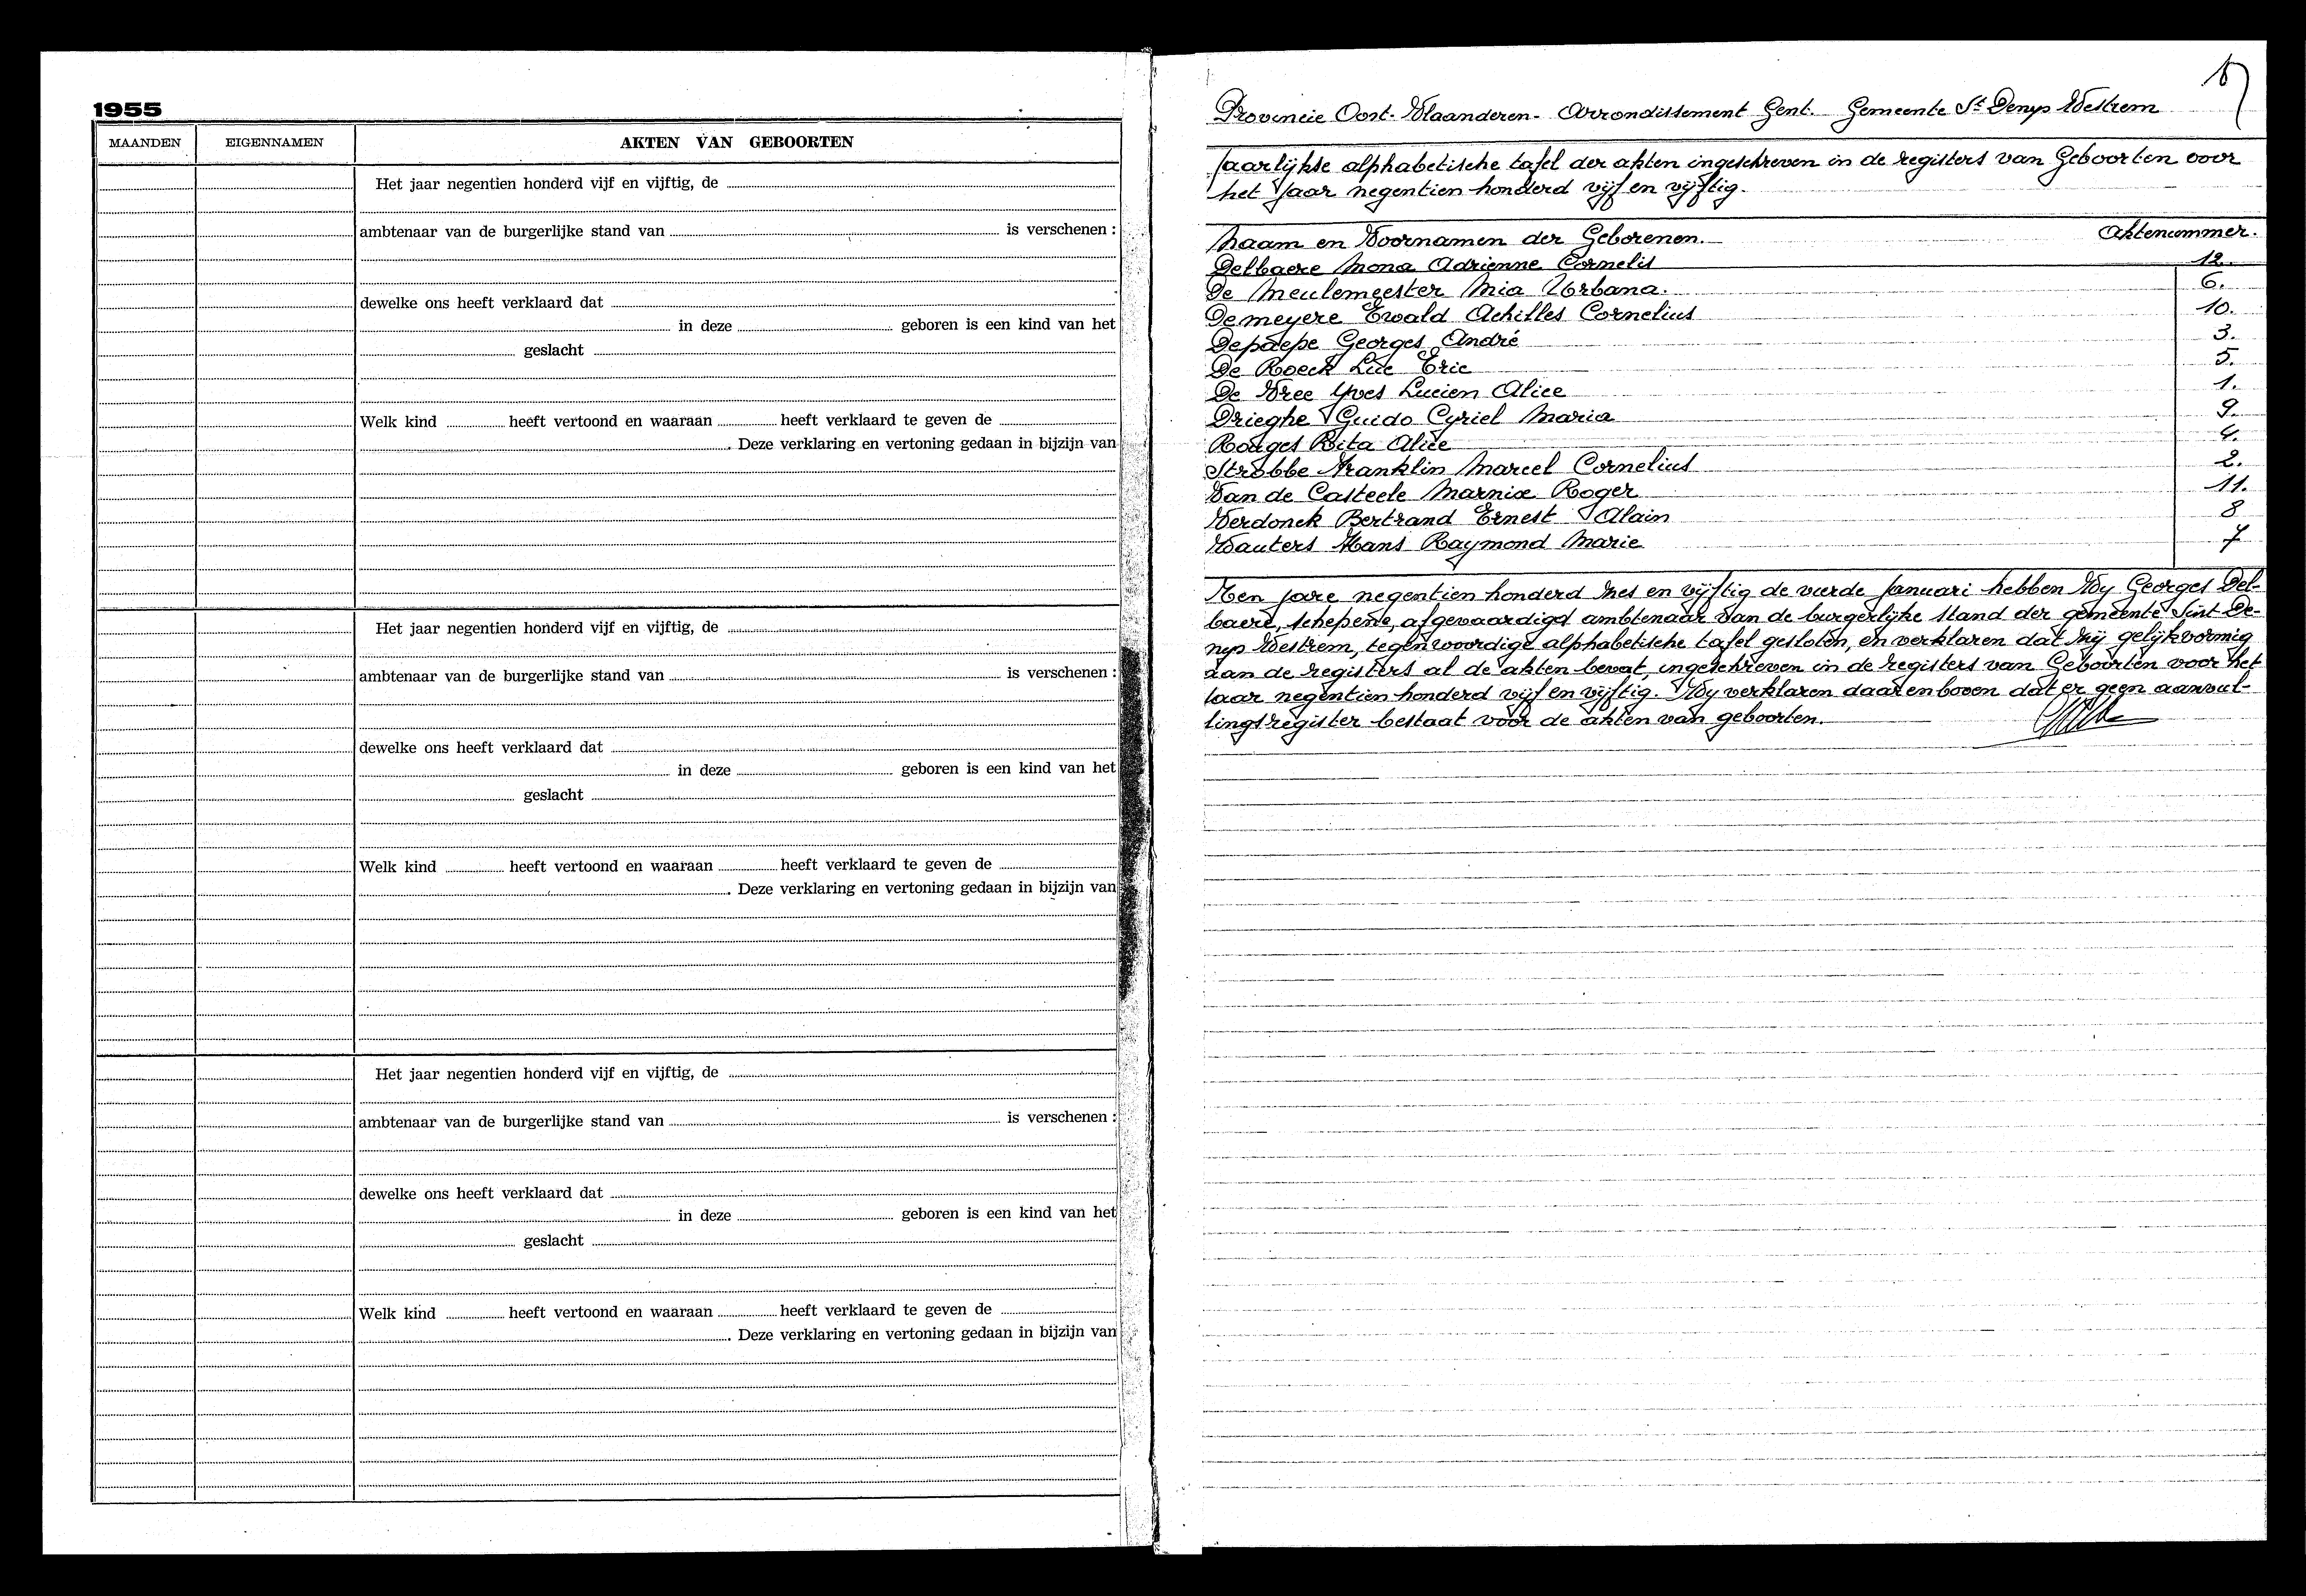 1955
MAANDEN EIGENNAMEN AKTEN VAN GEBOORTEN
Het jaar negentien honderd vijf en vijftig, de
ambtenaar van de burgerlijke stand van is verschenen :
dewelke ons heeft verklaard dat
in deze geboren is een kind van het
geslacht
Welk kind heeft vertoond en waaraan heeft verklaard te geven de
. Deze verklaring en vertoning gedaan in bijzijn van
Het jaar negentien honderd vijf en vijftig, de
ambtenaar van de burgerlijke stand van is verschenen :
dewelke ons heeft verklaard dat
in deze geboren is een kind van het
geslacht
Welk kind heeft vertoond en waaraan heeft verklaard te geven de
. Deze verklaring en vertoning gedaan in bijzijn van
Het jaar negentien honderd vijf en vijftig, de
ambtenaar van de burgerlijke stand van is verschenen :
dewelke ons heeft verklaard dat
in deze geboren is een kind van het
geslacht
Welk kind heeft vertoond en waaraan heeft verklaard te geven de
. Deze verklaring en vertoning gedaan in bijzijn van
Provincie Oost-Vlaanderen - Arrondissement Gent. Gemeente St Denys Westrem
Jaarlijkse alphabetische tafel der akten ingeschreven in de registers van Geboorten voor
het Jaar negentien honderd vijf en vijftig.
Naam en Voornamen der Geborenen. Aktenummer.
Delbaere Mona Adrienne Cornelis 12.
De Meulemeester Mia Urbana. 6.
Demeyere Ewald Achilles Cornelius 10.
Depaepe Georges André 3.
De Roeck Luc Eric 5.
De Vree Yves Lucien Alice 1.
Drieghe Guido Cyriel Maria 9.
Rodges Rita Alice 4.
Strobbe Franklin Marcel Cornelius 2.
Van de Casteele Marnix Roger 11.
Verdonck Bertrand Ernest Alain 8
Wauters Hans Raymond Marie 7
Ten jare negentien honderd zes en vijftig de vierde Januari hebben Wy Georges Del-
baere, schepene, afgevaardigd ambtenaar van de burgerlijke stand der gemeente Sint-De-
nys Westrem, tegenwoordige alphabetische tafel gesloten, en verklaren dat zij gelijkvormig
aan de registers al de akten bevat, ingeschreven in de registers van Geboorten voor het
Jaar negentien honderd vijf en vijftig. Wy verklaren daarenboven dat er geen aanvul-
lingsregister bestaat voor de akten van geboorten.